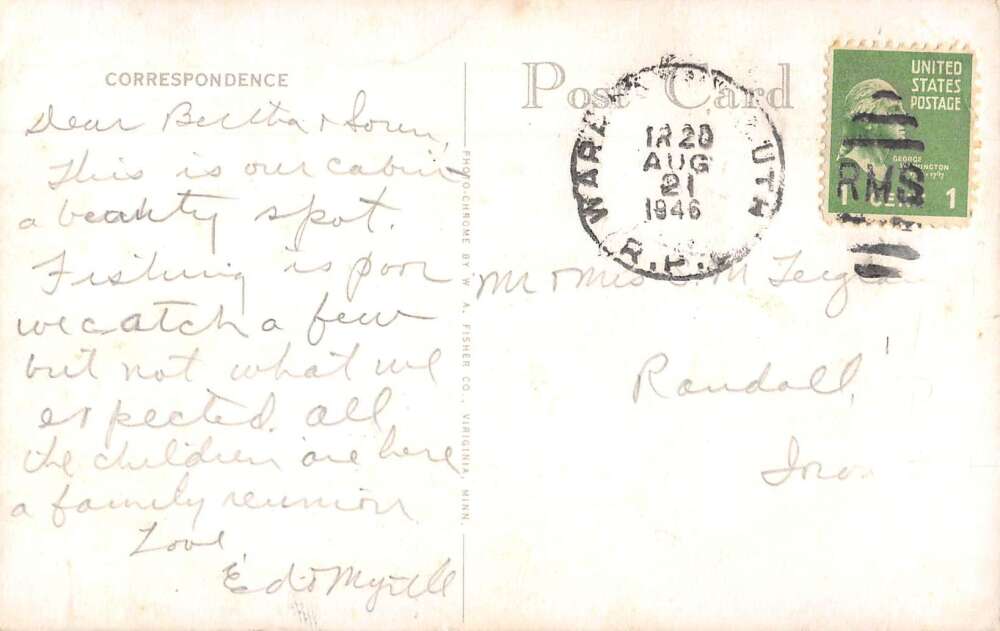 CORRESPONDENCE
Post Card
Dear Bertha & Soren,
This is our cabin
a beauty spot.
Fishing is poor
we catch a few
but not what we
expected. all
the children are here
a family reunion
Love
Ed & Myrtle
PHOTO-CHROME BY W. A. FISHER CO., VIRGINIA, MINN.
UTH
R.P.
AUG
21
1946
UNITED
STATES
POSTAGE
GEORGE
1 CENT 1
RMS
Mr & Mrs M
Randall,
Iowa